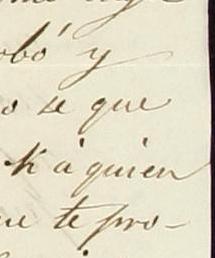 obó y
o se que
ti á quien
ue te pro-